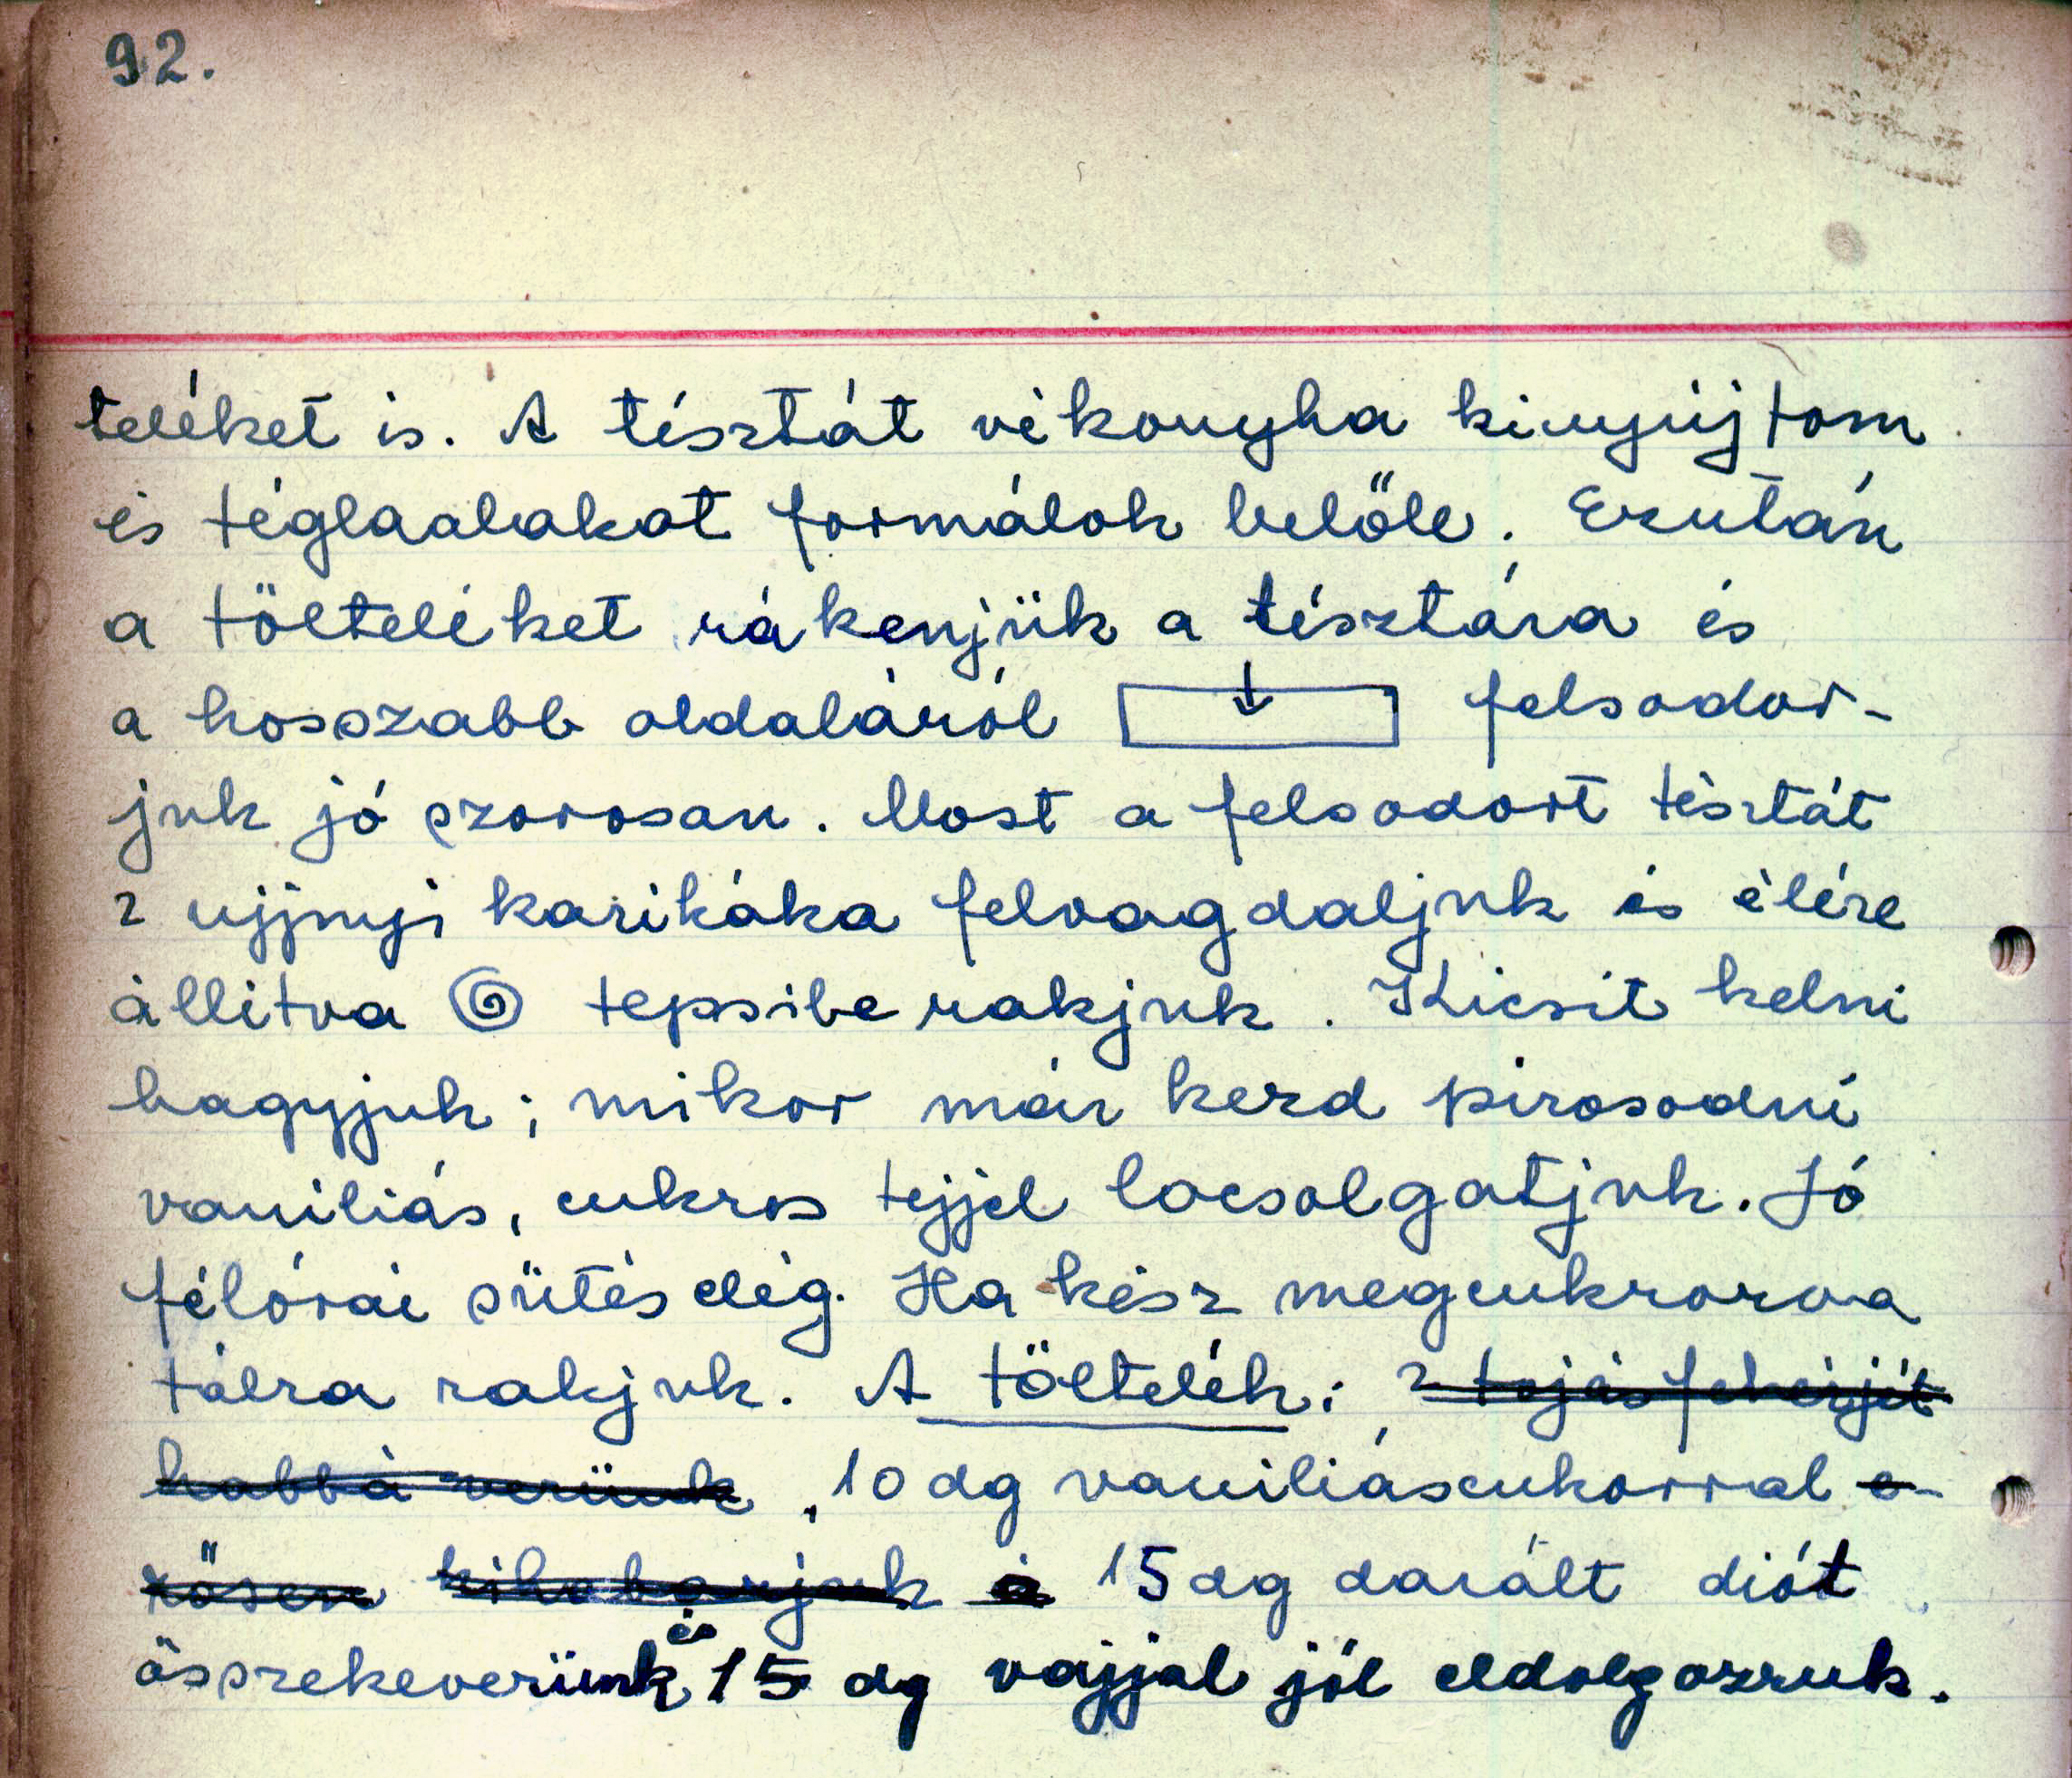 92.
teléket is. A tésztát vékonyha kinyújtom
és téglaalakot formálok belőle. Ezután
a tölteléket rákenjük a tésztára és
a hosszabb oldaláról felsodor-
juk jó szorosan. Most a felsodort tésztát
2 ujjnyi karikáka felvagdaljuk és élére
állitva tepsibe rakjuk. Kicsit kelni
hagyjuk; mikor már kezd pirosodni
vaniliás, cukros tejjel locsolgatjuk. Jó
félórai sütés elég. Ha kész megcukrozva
tálra rakjuk. A töltelék: 2 tojásfehérjét
habbá verünk, 10 dg vaniliáscukorral e-
rősen kihabarjuk és 15 dg darált diót
összekeverünk és 15 dg vajjal jól eldolgozzuk.